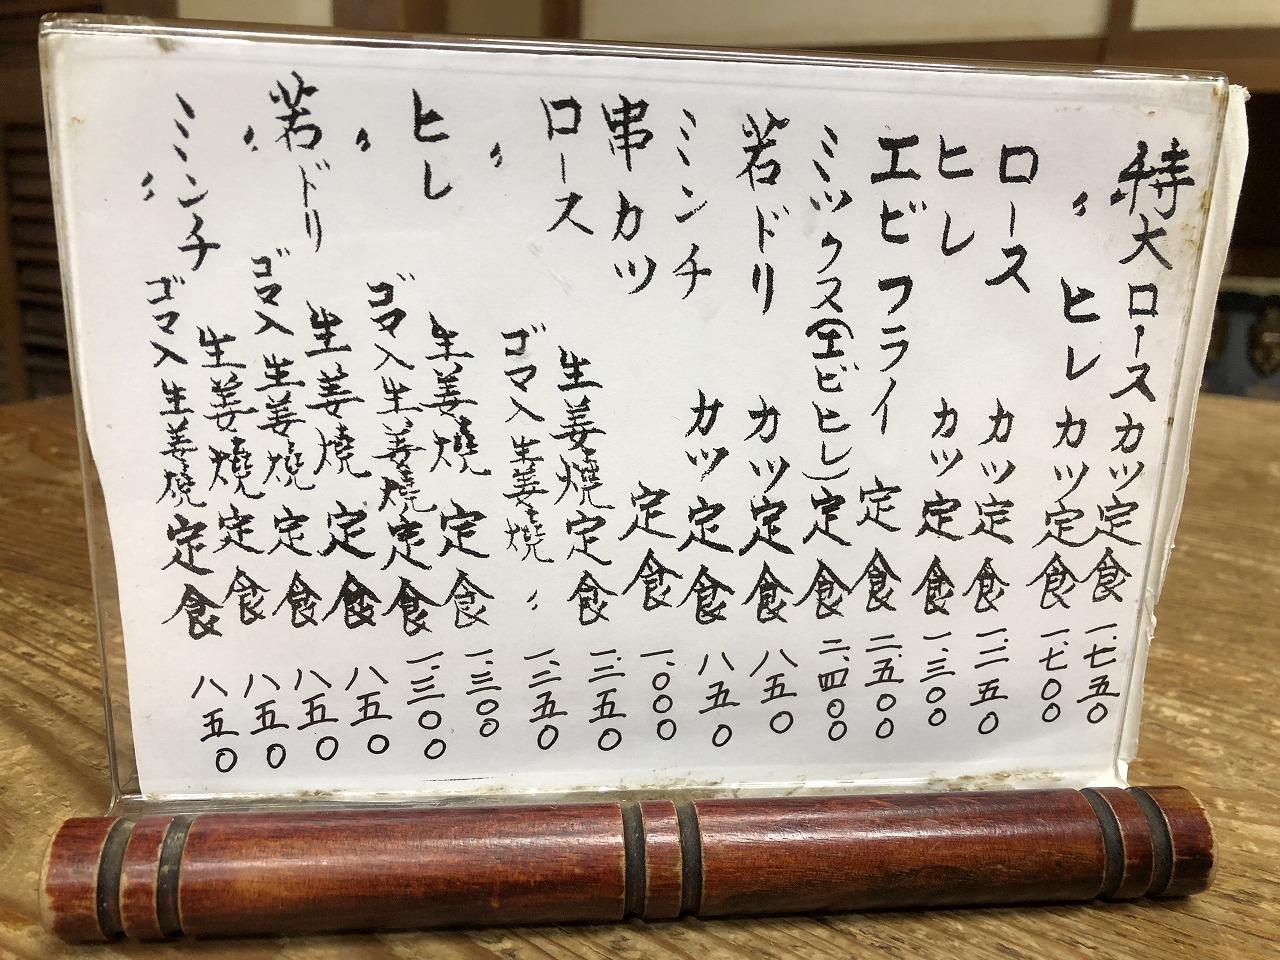 特大ロースカツ定食 一.七五〇
〃 ヒレカツ定食 一.七〇〇
ロースカツ定食 一.二五〇
ヒレカツ定食 一.三〇〇
エビフライ定食 二.五〇〇
ミックス(エビヒレ)定食 二.四〇〇
若ドリカツ定食 八五〇
ミンチカツ定食 八五〇
串カツ定食 一.〇〇〇
ロース生姜燒定食 一.二五〇
〃 ゴマ入生姜燒 〃 一.二五〇
ヒレ生姜燒定食 一.三〇〇
〃 ゴマ入生姜燒定食 一.三〇〇
若ドリ生姜燒定食 八五〇
〃 ゴマ入生姜燒定食 八五〇
ミンチ生姜燒定食 八五〇
〃 ゴマ入生姜燒定食 八五〇